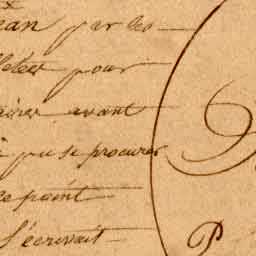 ean par les
pour
avant
pu se procurer
ce point
s'écrivait
P